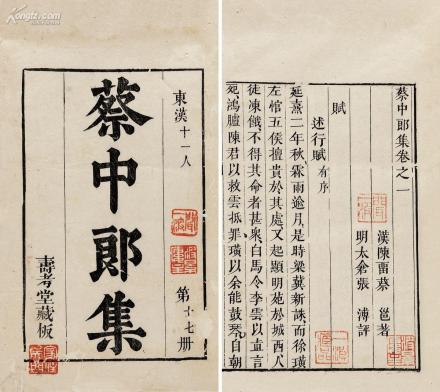 東漢十一人
第十七册
蔡中郎集
壽考堂藏板
蔡中郎集卷之一
漢陳留蔡 邕著
明太倉張 溥評
賦
述行賦 有序
延熹二年秋霖雨逾月是時梁冀新誅而徐璜
左悺五侯擅貴於其處又起顯明苑於城西人
徒凍餓不得其命者甚衆白馬令李雲以直言
死鴻臚陳君以救雲抵罪璜以余能鼓琴自朝